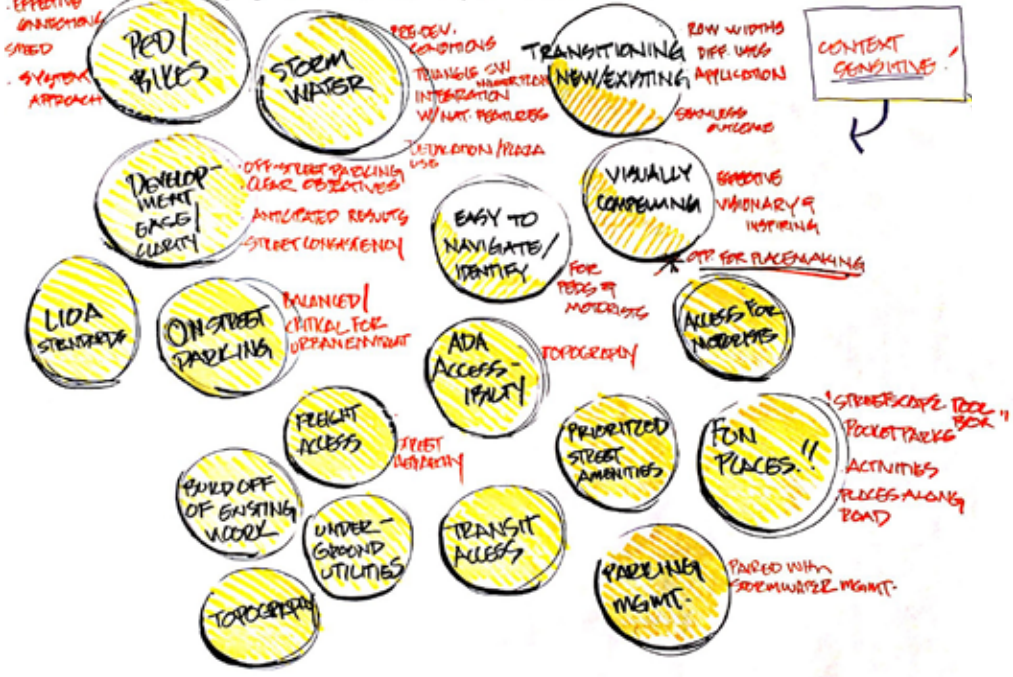 EFFECTIVE
CONNECTIONS
SPEED
· SYSTEM
APPROACH
PED/
BIKES
STORM
WATER
PRE-DEV.
CONDITIONS
TRIANGLE SW
INTEGRATION
W/NAT. FEATURES
/PLAZA
USE
TRANSITIONING
NEW/EXISTING
ROW WIDTHS
DIFF. USES
APPLICATION
SEAMLESS
OUTCOME
CONTEXT
SENSITIVE!
DEVELOP-
MENT
EASE/
CLARITY
· OFF-STREET PARKING
CLEAR OBJECTIVES
ANTICIPATED RESULTS
STREET CONSISTENCY
EASY TO
NAVIGATE/
IDENTIFY
FOR
PEDS &
MOTORISTS
VISUALLY
COMPELLING
EFFECTIVE
VISIONARY &
INSPIRING
OPP. FOR PLACEMAKING
LIDA
STANDARDS
ON STREET
PARKING
BALANCED/
CRITICAL FOR
ADA
ACCESS-
IBILTY
TOPOGRAPHY
ACCESS FOR
MOTORISTS
FREIGHT
ACCESS
STREET
HEIRARCHY
PRIORITIZED
STREET
AMENITIES
FUN
PLACES!!
"STREETSCAPE TOOL
BOX"
POCKET PARKS
ACTIVITIES
PLACES ALONG
ROAD
BUILD OFF
OF EXISTING
WORK
UNDER-
GROUND
UTILITIES
TRANSIT
ACCESS
PARKING
MGMT.
PAIRED WITH
STORMWATER MGMT.
TOPOGRAPHY